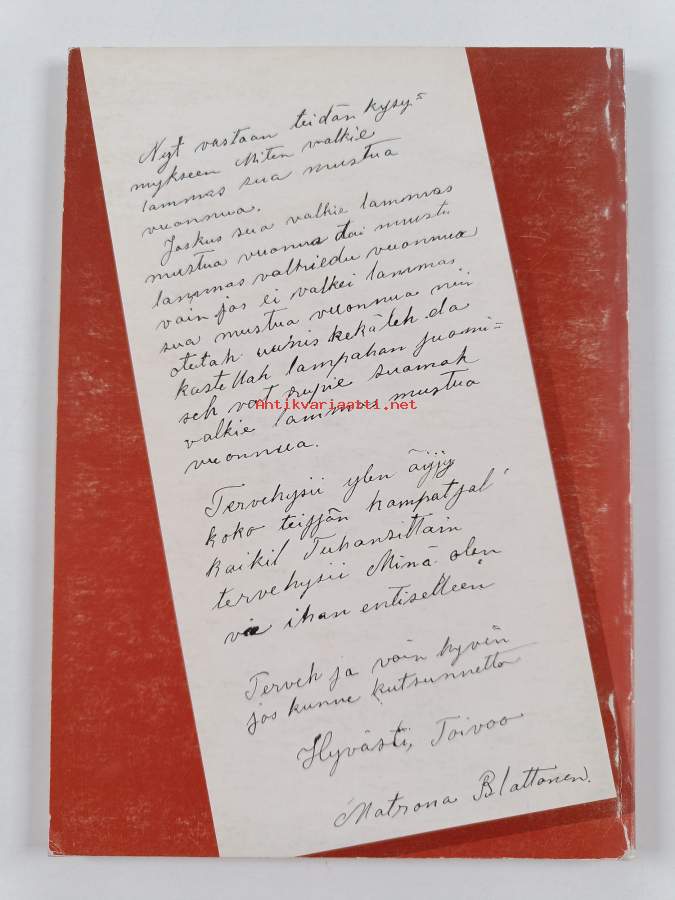 Nyt vastaan teidän kysy=
mykseen Miten valkie
lammas sua mustua
vuonnua.
Joskus sua valkie lammas
mustua vuonua tai mustu
lammas valkiedu vuonnua
vain jos ei valkei lammas
sua mustua vuonnua nii
otetah uunis kekäleh da
kastellah lampahan juomi=
seh vot rupie suamah
valkie lammas mustua
vuonnua.
Antikvariaatti.net
Tervehysii ylen äijy
koko teijän kampatjal
kaikil Tuhansittain
tervehysii Minä olen
vie ihan entiselleen
Terveh ja vain hyvin
jos kunne kutsunnetto
Hyvästi, Toivoo
Matrona Blattonen.